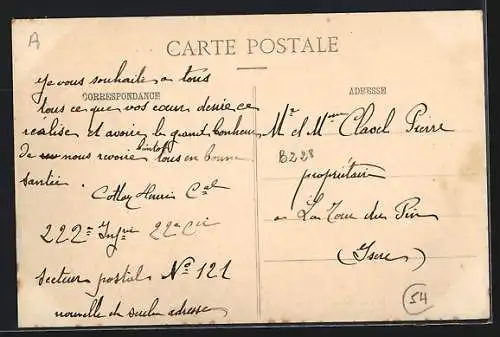 A
CARTE POSTALE
CORRESPONDANCE
ADRESSE
Je vous souhaite a tous
tous ce que vos cœur desire ce
réalise et avoir le grand bonheur
de nous revoire bientot tous en bonne
santée.
Henri Cal
222e Infie 22e Cie
Secteur postal No 121
nouvelle et seule adresse
Mr et Mme Clavel Pierre
B228
propriétaire
a La Tour du Pin
(Isere)
54